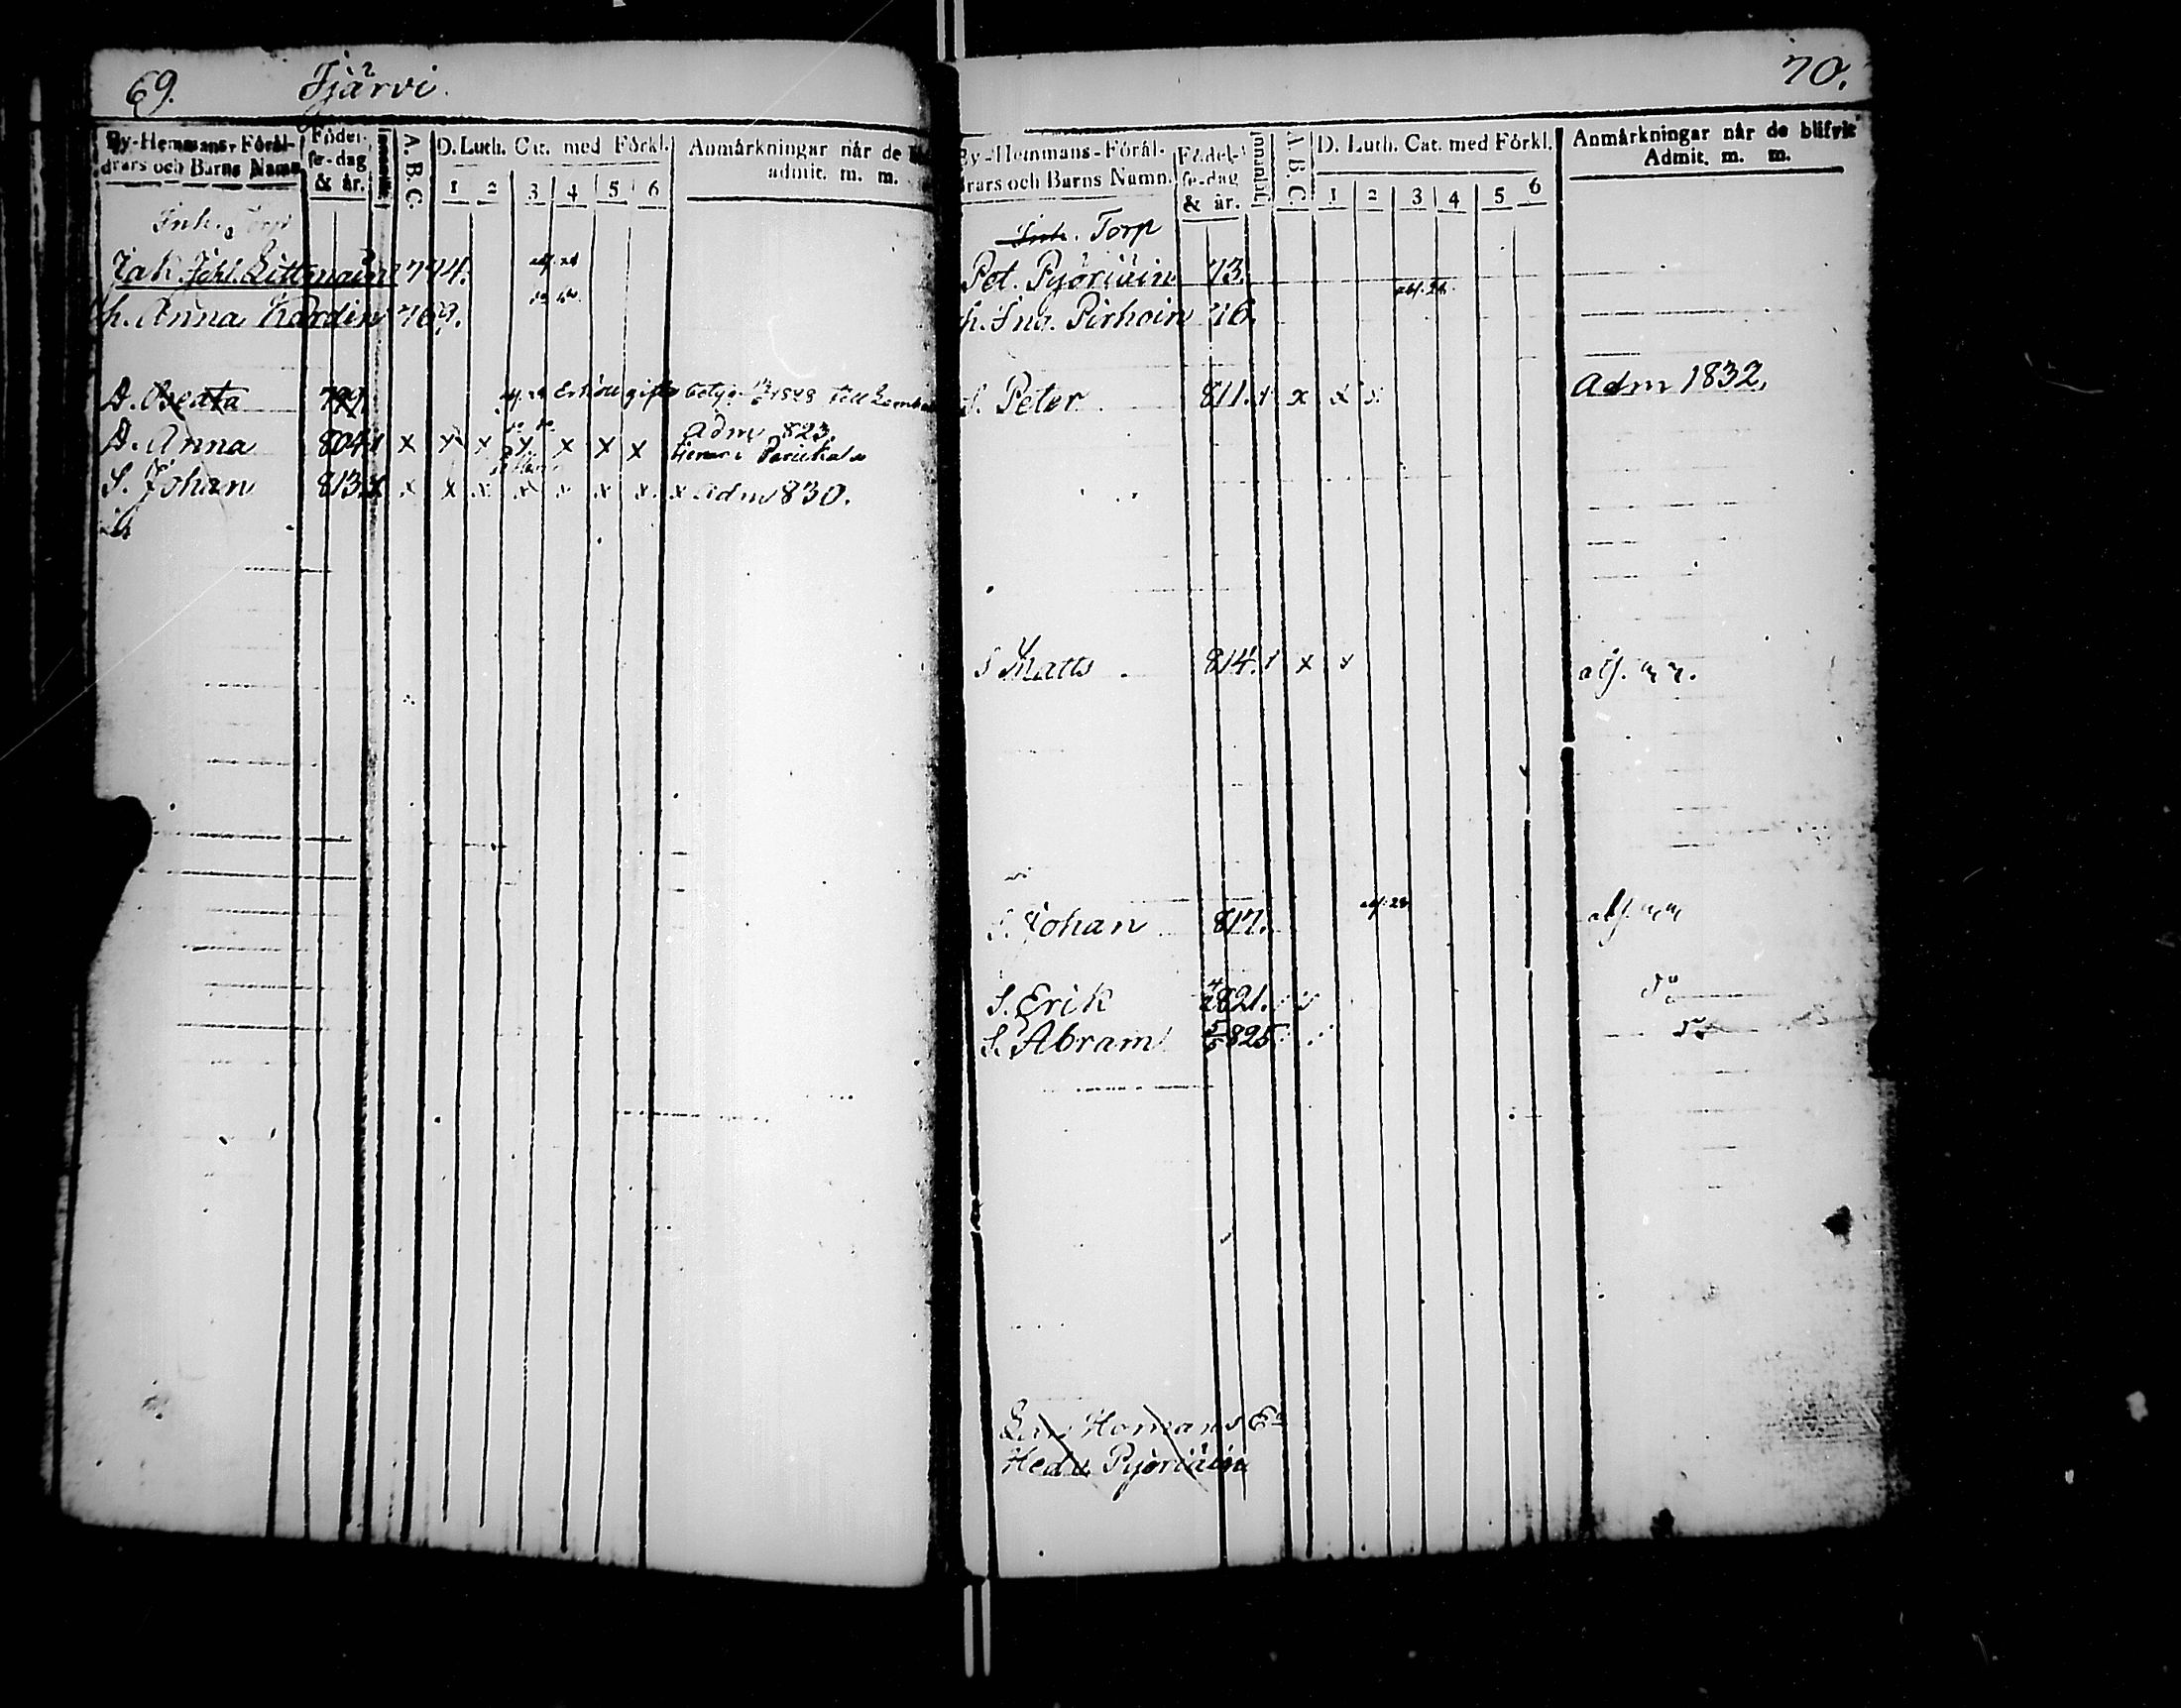 69. Tjärvi.
By-Hemmans-Föräl-
drars och Barns Namn
Födel-
se-dag
& år.
A.B.C.
D. Luth. Cat. med Förkl.
1 2 3 4 5 6
Anmärkningar når de
admit. m. m.
Inh. Torp
Jak. Joh. Littmain 774.
h. Anna Kardin 769.
D. Beata 799 Erhöll gifte betyg 1828 till
D. Anna 804 x x x x x x x x Adm 823
tienar i Parikala
S. Johan 813 x x x x x x x x x Adm 830.
70.
By-Hemmans-Föräl-
drars och Barns Namn.
Födel-
se-dag
& år.
Innanläs.
A.B.C.
D. Luth. Cat. med Förkl.
1 2 3 4 5 6
Anmärkningar når de blifvit
Admit. m. m.
Inh. Torp
Pet. Pyöriäin 73.
h. Ing. Pirhoin 76.
S. Peter 811. x x x x Adm 1832.
S Matts 814. x x x
S. Johan 817.
S. Erik 821.
S. Abram 825.
Homans En
Hedv. Pyöriäin